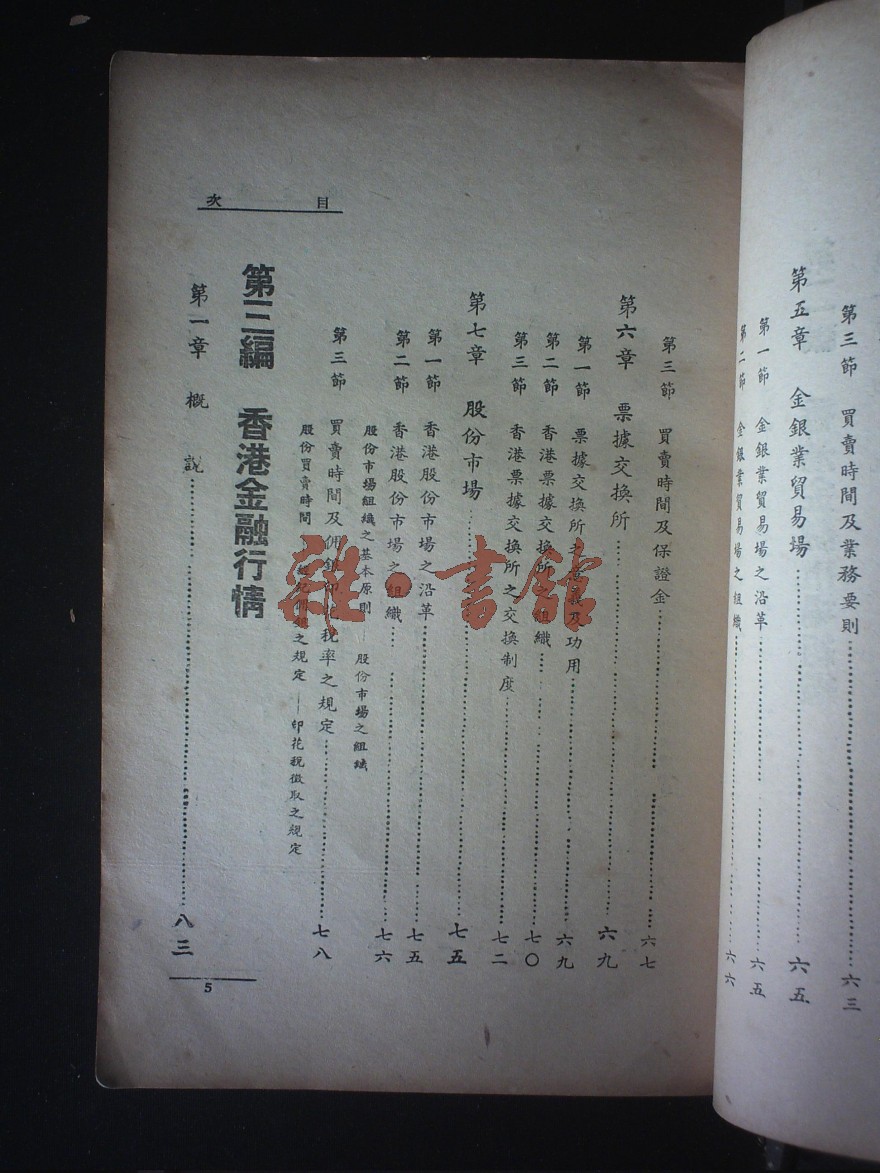 第三節 買賣時間及業務要則……六三
第五章 金銀業貿易場……六五
第一節 金銀業貿易場之沿革……六五
第二節 金銀業貿易場之組織……六六
目次
第三節 買賣時間及保證金……六七
第六章 票據交換所……六九
第一節 票據交換所之意義及功用……六九
第二節 香港票據交換所之組織……七〇
第三節 香港票據交換所之交換制度……七二
第七章 股份市場……七五
第一節 香港股份市場之沿革……七五
第二節 香港股份市場之組織……七六
股份市場組織之基本原則——股份市場之組織
第三節 買賣時間及佣銀印花稅率之規定……七八
股份買賣時間 之規定——印花税徵取之規定
第三編 香港金融行情
第一章 概說……八三
5
雜·書館